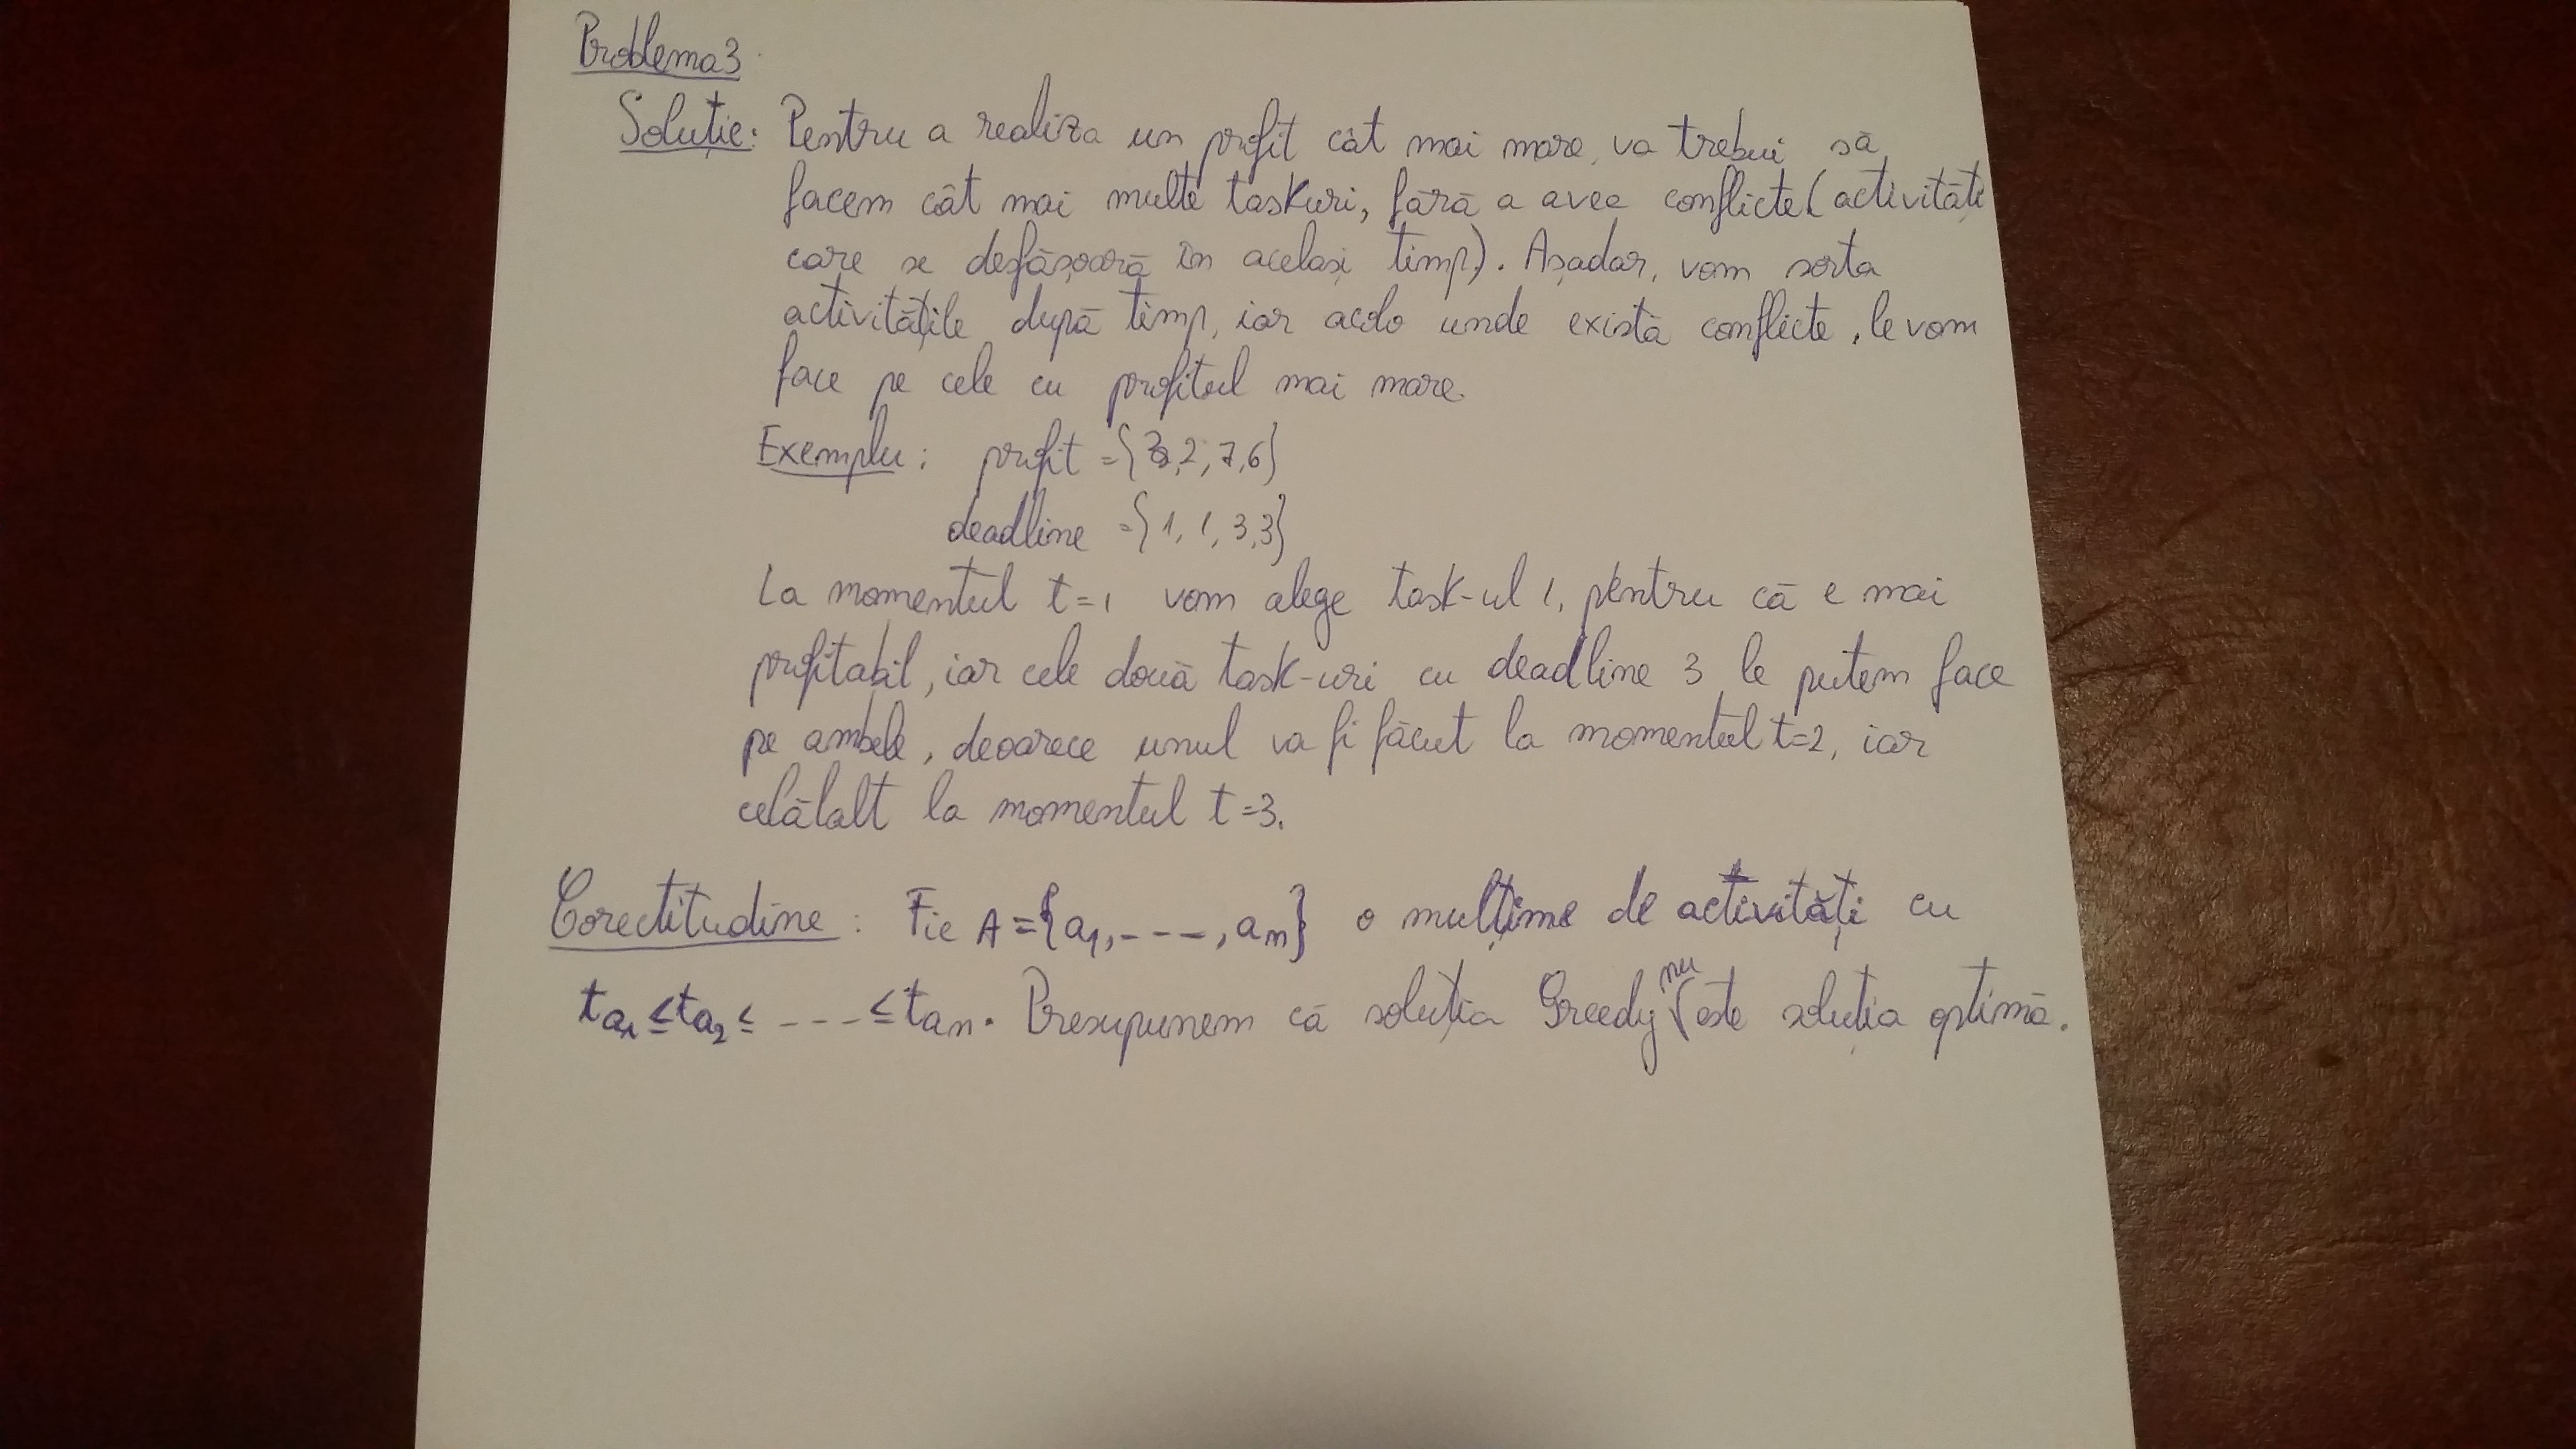 Problema 3.
Soluție: Pentru a realiza un profit cât mai mare, va trebui să
facem cât mai multe taskuri, fără a avea conflicte (activități
care se desfășoară în același timp). Așadar, vom sorta
activitățile după timp, iar acolo unde există conflicte, le vom
face pe cele cu profitul mai mare.
Exemplu: profit = {3,2,7,6}
deadline = {1,1,3,3}
La momentul t=1 vom alege task-ul 1, pentru că e mai
profitabil, iar cele două task-uri cu deadline 3 le putem face
pe ambele, deoarece unul va fi făcut la momentul t=2, iar
celălalt la momentul t=3.
Corectitudine: Fie A={a1,---,an} o mulțime de activități cu
ta1≤ta2≤---≤tan. Presupunem că soluția Greedy nu este soluția optimă.